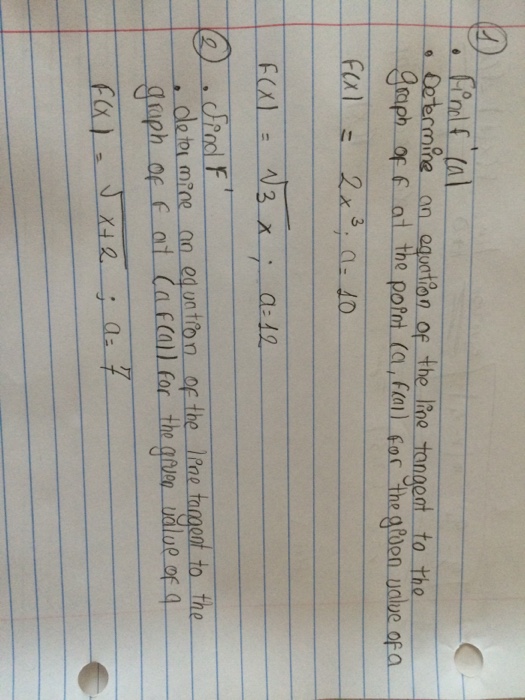 ①
• find f'(a)
• Determine an equation of the line tangent to the
graph of f at the point (a, f(a)) for the given value of a
f(x) = 2x³; a=10
f(x) = √3x ; a=12
② • find f'
• determine an equation of the line tangent to the
graph of f at (a f(a)) for the given value of a
f(x) = √x+2 ; a= 7